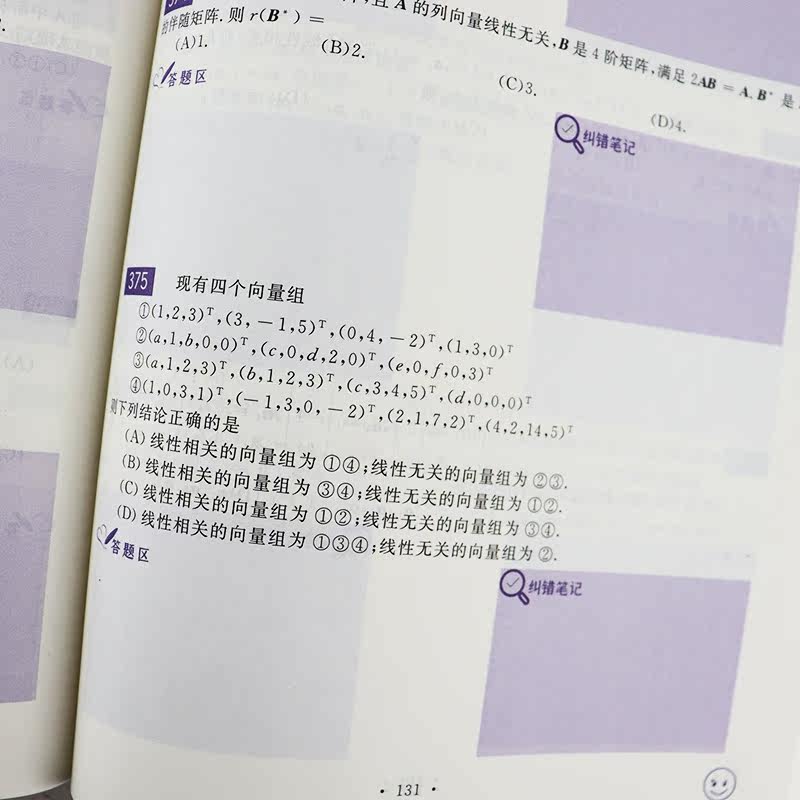 , 且 A 的列向量线性无关, B 是 4 阶矩阵, 满足 2AB = A. B* 是
的伴随矩阵. 则 r(B*) =
(A)1.
(B)2.
(C)3.
(D)4.
答题区
纠错笔记
375 现有四个向量组
①(1,2,3)ᵀ,(3,－1,5)ᵀ,(0,4,－2)ᵀ,(1,3,0)ᵀ
②(a,1,b,0,0)ᵀ,(c,0,d,2,0)ᵀ,(e,0,f,0,3)ᵀ
③(a,1,2,3)ᵀ,(b,1,2,3)ᵀ,(c,3,4,5)ᵀ,(d,0,0,0)ᵀ
④(1,0,3,1)ᵀ,(－1,3,0,－2)ᵀ,(2,1,7,2)ᵀ,(4,2,14,5)ᵀ
则下列结论正确的是
(A) 线性相关的向量组为 ①④;线性无关的向量组为 ②③.
(B) 线性相关的向量组为 ③④;线性无关的向量组为 ①②.
(C) 线性相关的向量组为 ①②;线性无关的向量组为 ③④.
(D) 线性相关的向量组为 ①③④;线性无关的向量组为 ②.
答题区
纠错笔记
· 131 ·